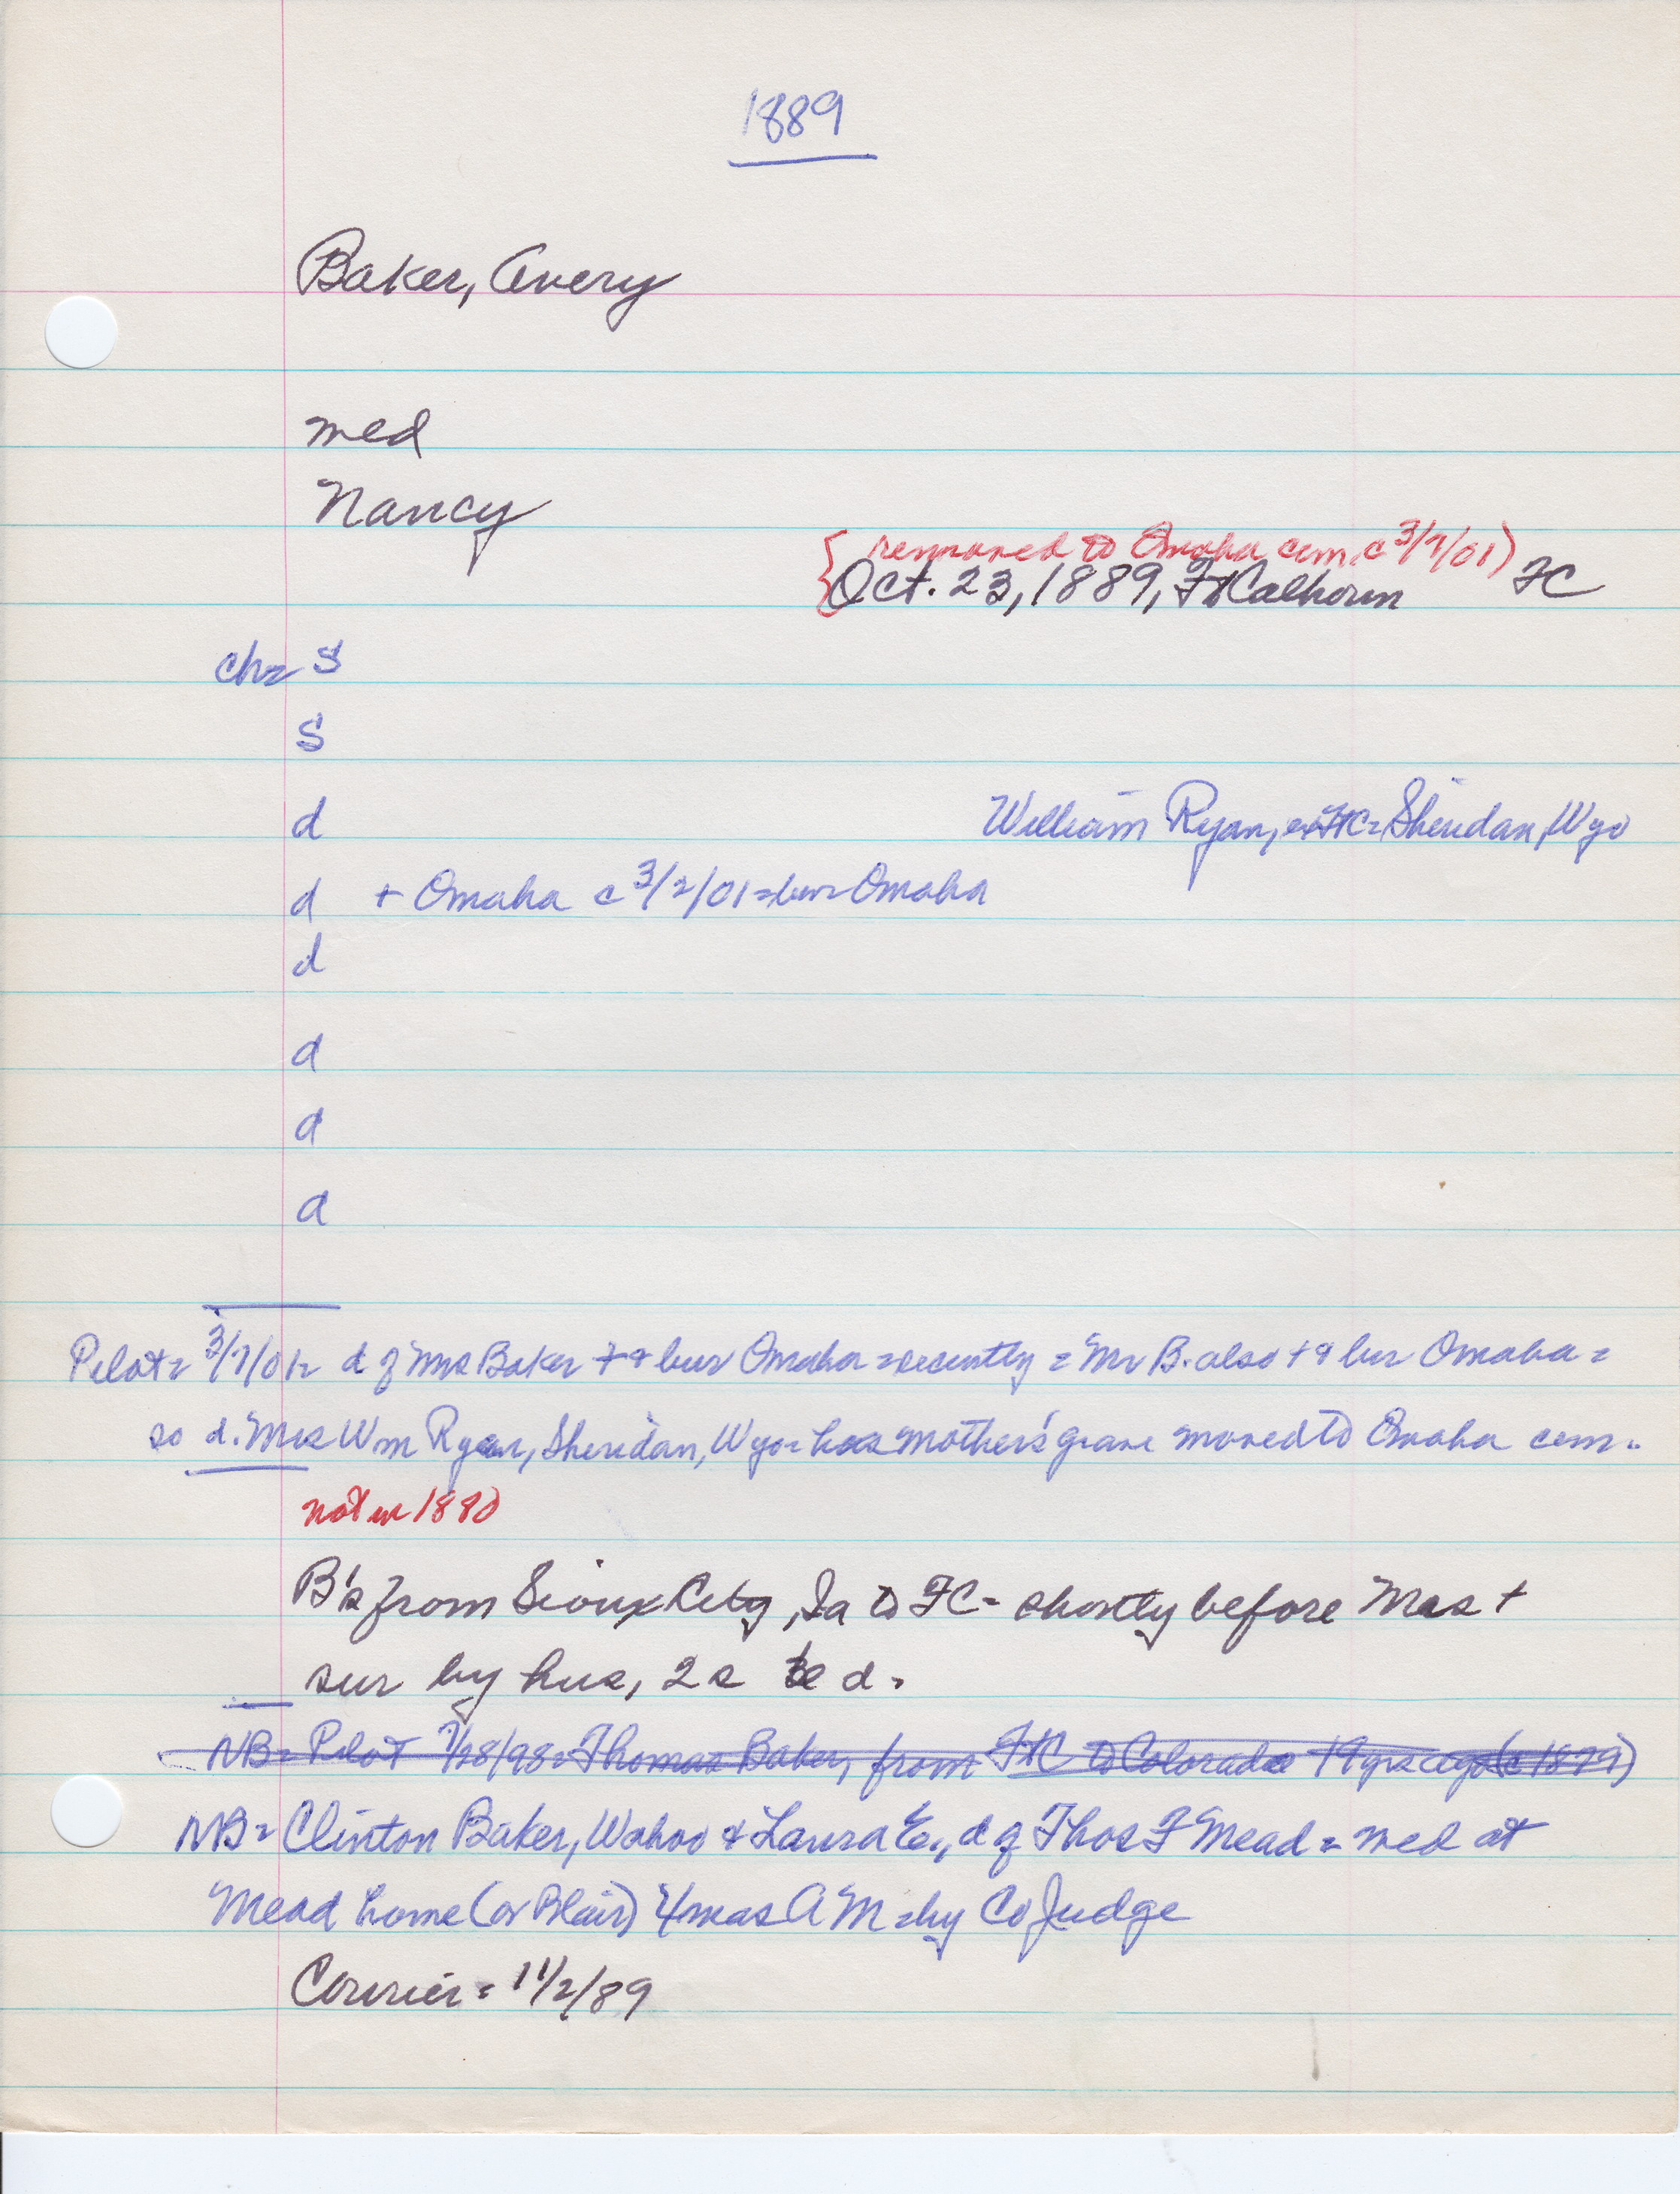 1889
Baker, Avery
med
Nancy
{ removed to Omaha cem. c 3/7/01)
Oct. 23, 1889, Ft Calhoun FC
ch= s
s
d William Ryan, ex FtC = Sheridan, Wyo
d + Omaha c 3/2/01 = bur Omaha
d
d
d
d
Pilot = 3/7/01 = d of Mrs Baker + & bur Omaha = recently = Mr B. also + & bur Omaha =
so d. Mrs Wm Ryan, Sheridan, Wyo = has mother's grave moved to Omaha cem.
not in 1880
B's from Sioux City, Ia to FC - shortly before Mrs +
sur by hus, 2 s d.
NB = Pilot 7/28/98 = Thomas Baker, from FtC to Colorado 19 yrs ago (c 1879)
NB = Clinton Baker, Wahoo & Laura E., d of Thos F Mead = med at
Mead home (or Blair) AM = by Co Judge
Courier = 11/2/89